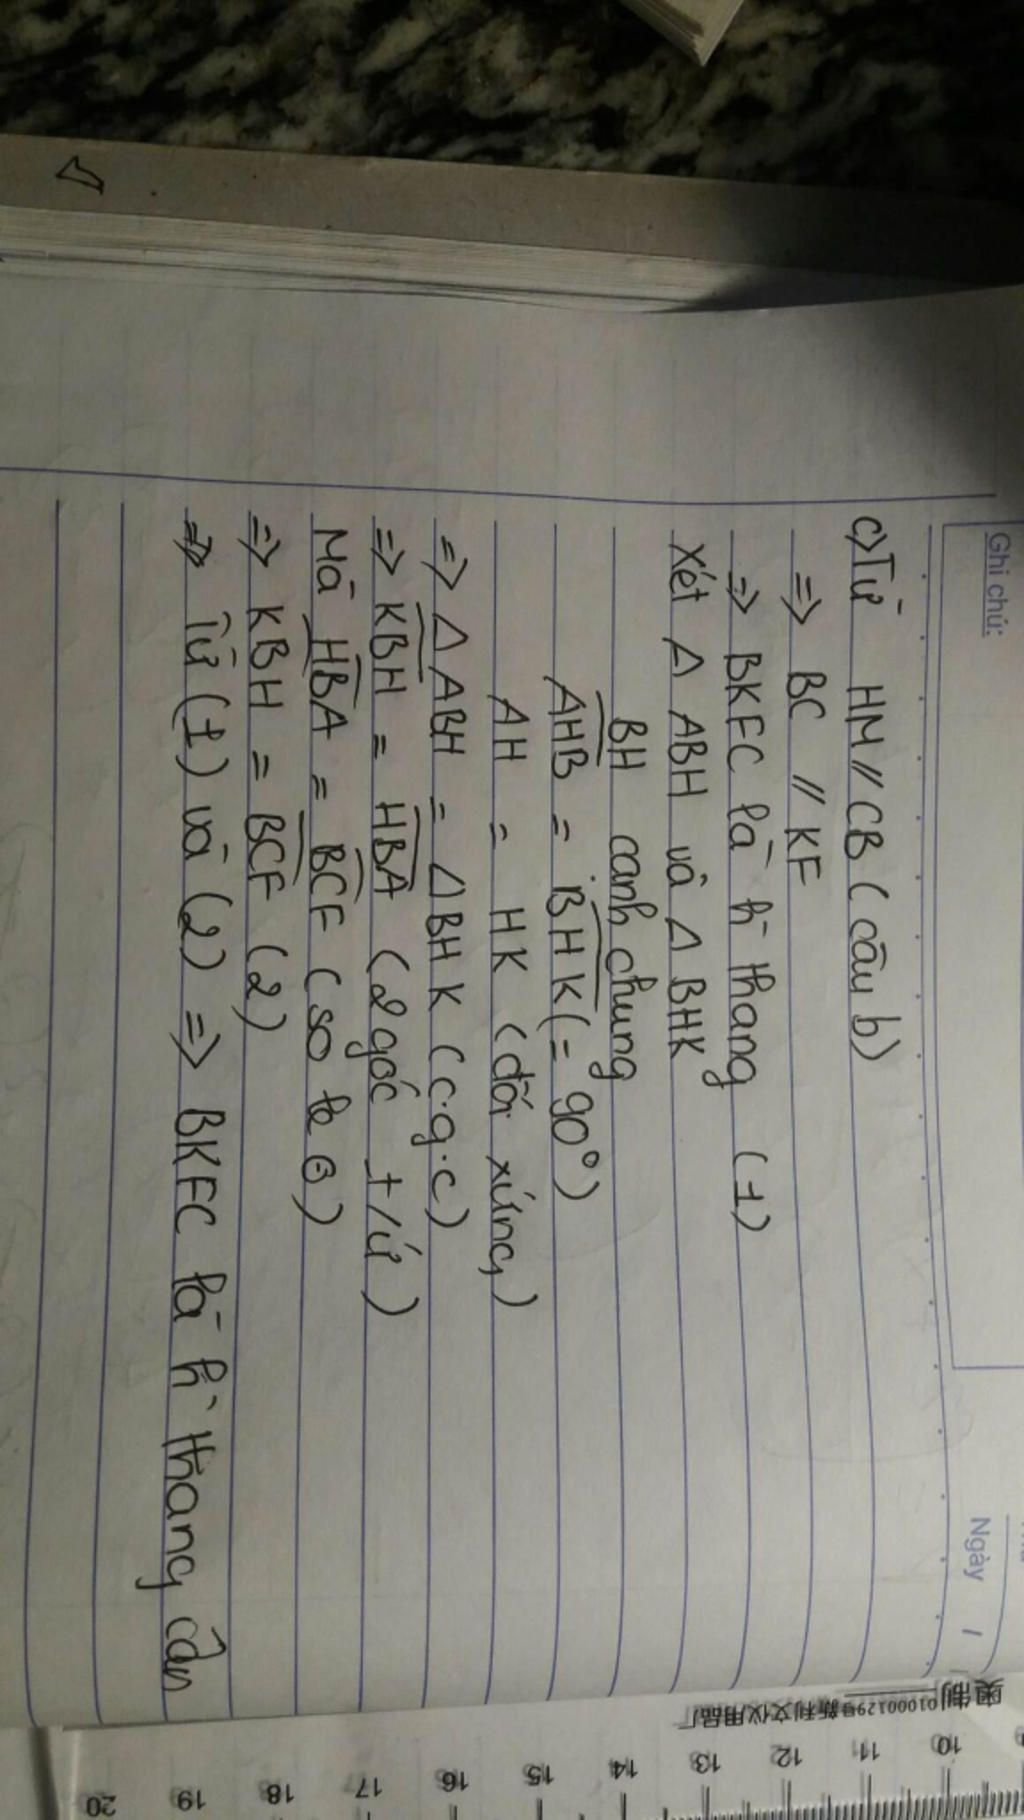 Ghi chú:
Ngày /
c) Từ HM // CB (câu b)
=> BC // KF
=> BKFC là h̀ thang (1)
Xét Δ ABH và Δ BHK
BH cạnh chung
AHB = BHK (= 90°)
AH = HK (đối xứng)
=> Δ ABH = Δ BHK (c.g.c)
=> KBH = HBA (2 góc t/ứ)
Mà HBA = BCF (so le
=> KBH = BCF (2)
=> Từ (1) và (2) => BKFC là h̀ thang cân
01000129号新利文仪用品厂
10 11 12 13 14 15 16 17 18 19 20